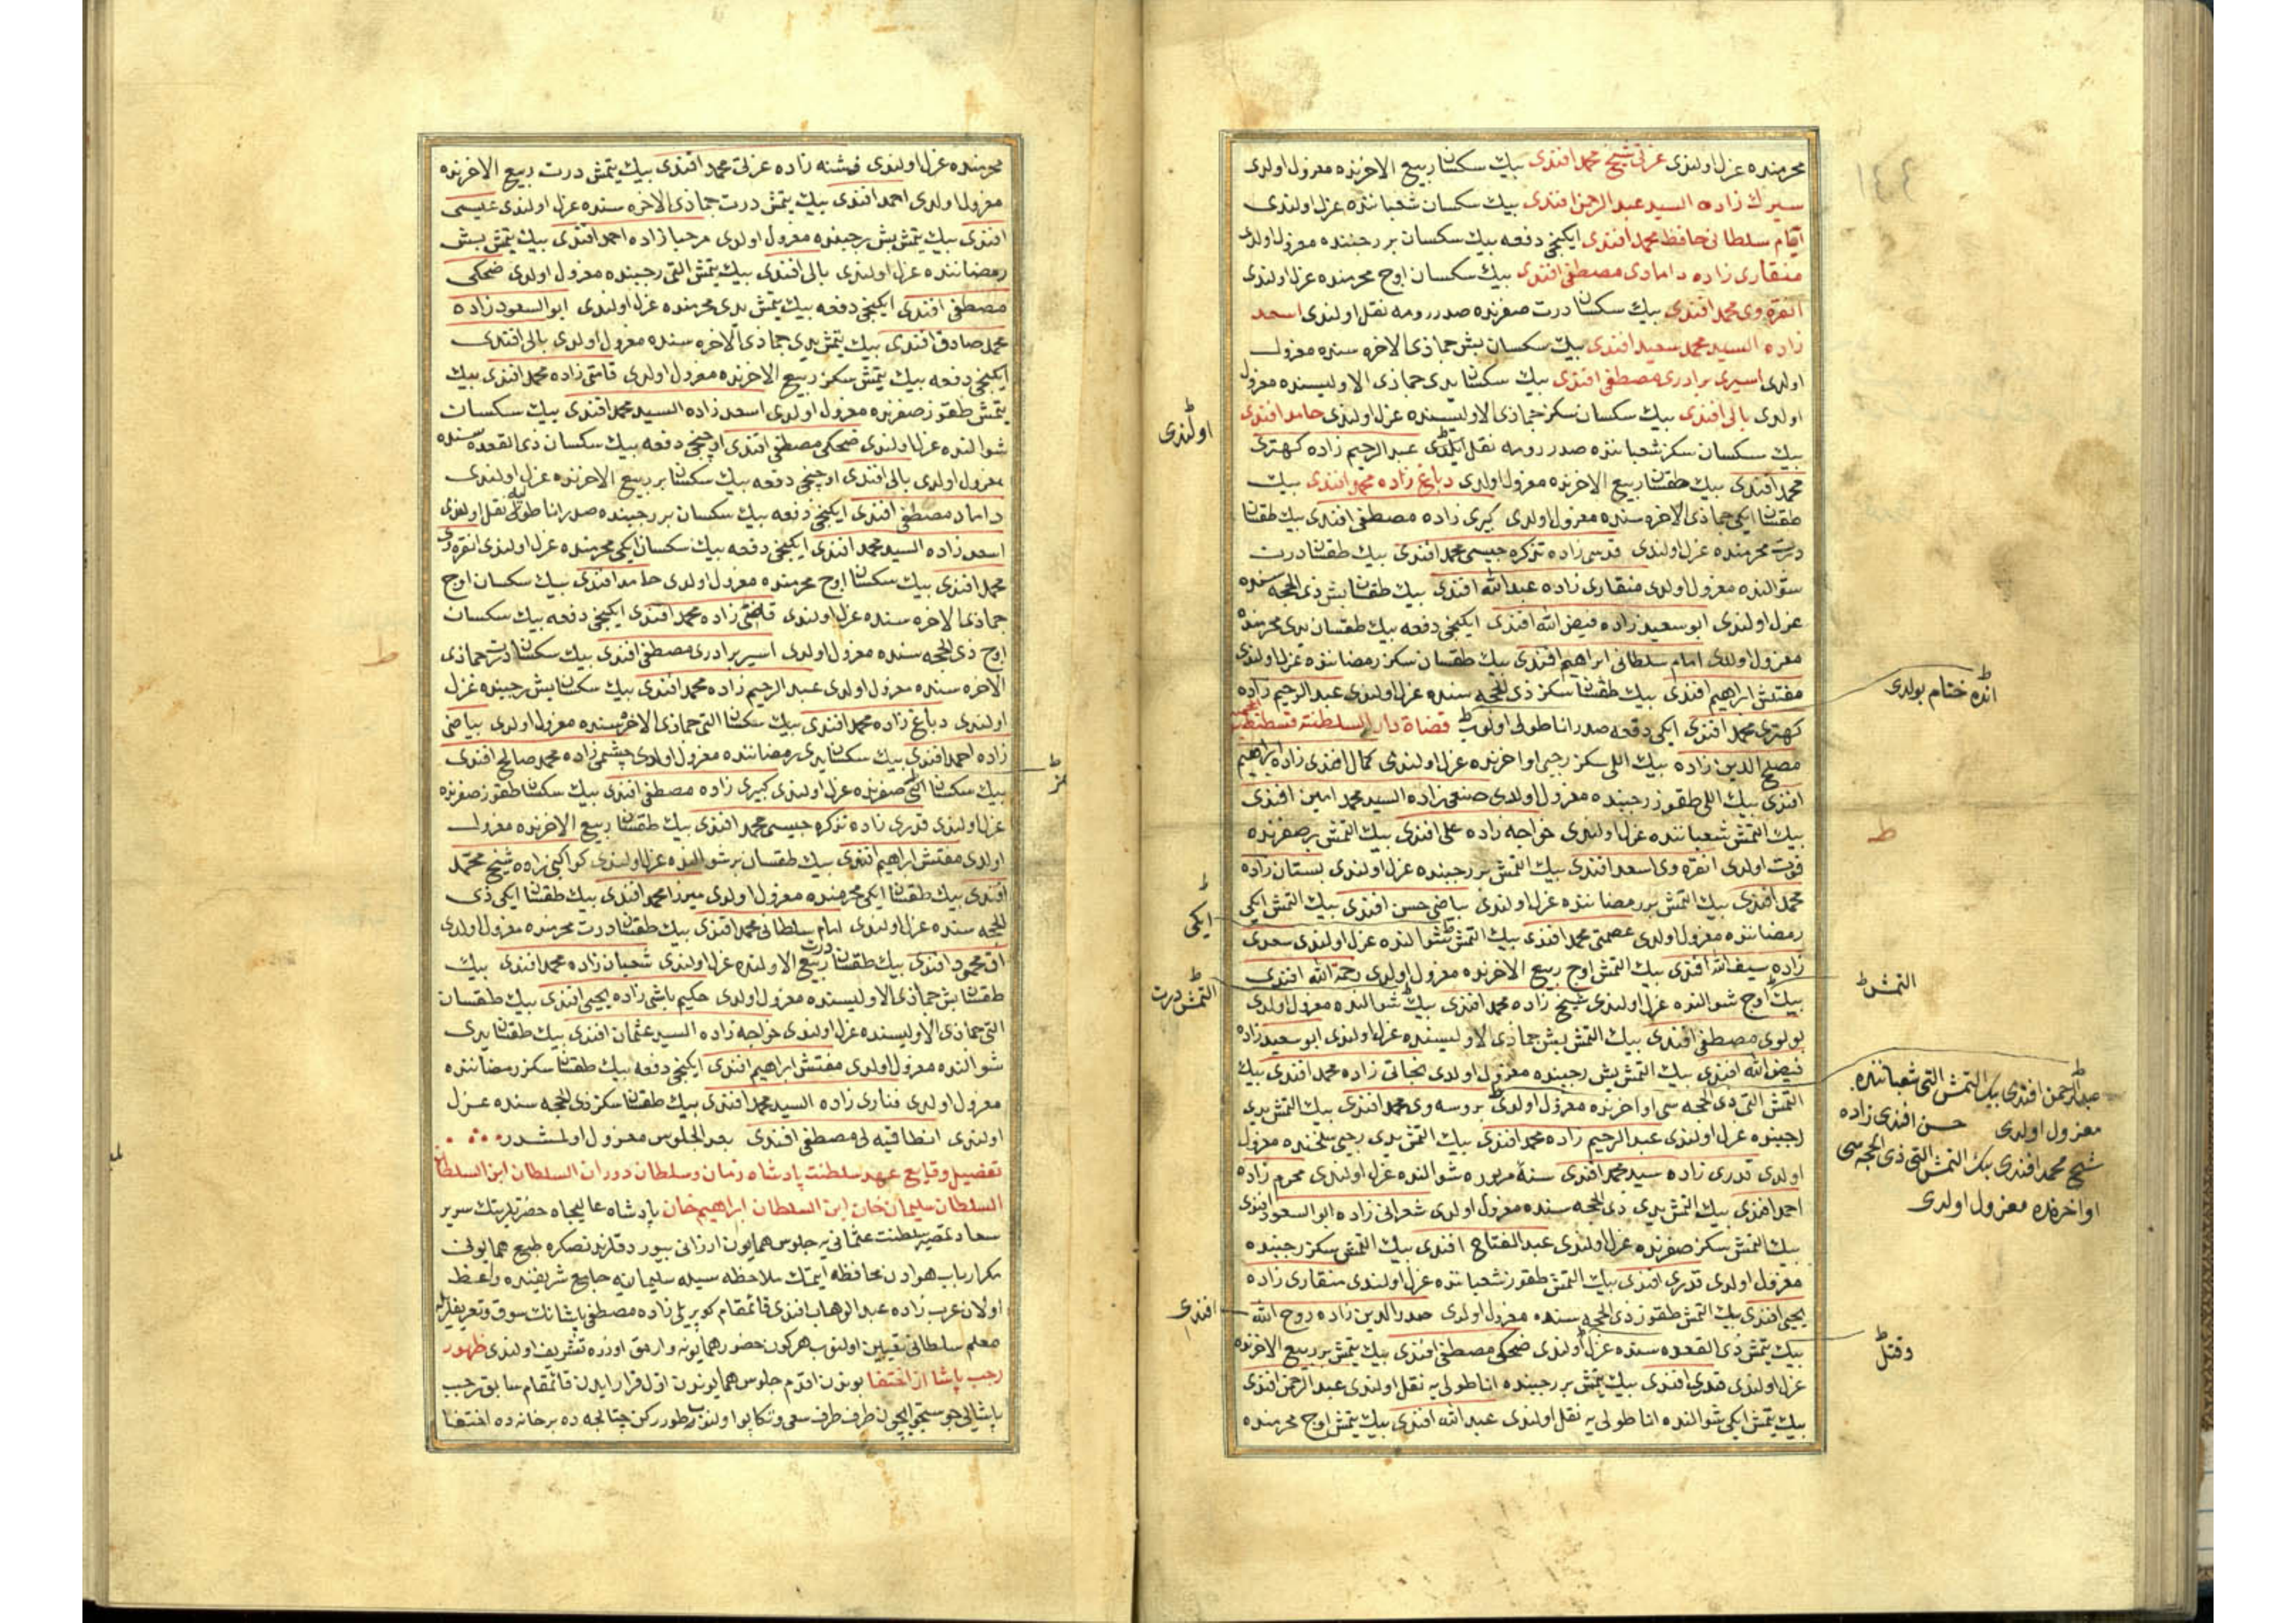 محرمنده عزل اولندی عزتی شیخ محمد افندی بیك سكسان ربیع الاخرنده معزول اولدی
سیرك زاده السید عبد الرحمن افندی بیك سكسان شعباننده عزل اولندی
امام سلطانی حافظ محمد افندی ایكنجی دفعه بیك سكسان بر رجبنده معزول اولدی
منقاری زاده دامادی مصطفی افندی بیك سكسان اوچ محرمنده عزل اولندی
انقره وی محمد افندی بیك سكسان درت صفرنده صدر رومه نقل اولندی اسعد
زاده السید محمد سعید افندی بیك سكسان بش جماذی الاخره سنده معزول
اولدی اسیری برادری مصطفی افندی بیك سكسان یدی جماذی الاولیسنده معزول
اولدی بالی افندی بیك سكسان سكز جماذی الاولیسنده عزل اولندی حامد افندی
بیك سكسان سكز شعباننده صدر رومه نقل ایلدی عبد الرحیم زاده كهتری
محمد افندی بیك طقسان ربیع الاخرنده معزول اولدی دباغ زاده محمد افندی بیك
طقسان ایكی جماذی الاخره سنده معزول اولدی كبری زاده مصطفی افندی بیك طقسان
درت محرمنده عزل اولندی قدسی زاده تذكره جیسی محمد افندی بیك طقسان درت
شوالنده معزول اولدی منقاری زاده عبد الله افندی بیك طقسان بش ذی الحجه سنده
عزل اولندی ابو سعید زاده فیض الله افندی ایكنجی دفعه بیك طقسان یدی محرمنده
معزول اولدی امام سلطانی ابراهیم افندی بیك طقسان سكز رمضاننده عزل اولندی
مفتش ابراهیم افندی بیك طقسان سكز ذی الحجه سنده عزل اولندی عبد الرحیم زاده
كهتری محمد افندی ایكی دفعه صدر اناطولی اولوب قضاة دار السلطنة قسطنطنیه
مصلح الدین زاده بیك اللی سكز رجبی اواخرنده عزل اولندی كمال افندی زاده ابراهیم
افندی بیك اللی طقوز رجبنده معزول اولدی صنعی زاده السید محمد امین افندی
بیك التمش شعباننده عزل اولندی خواجه زاده علی افندی بیك التمش بر صفرنده
فوت اولدی انقره وی اسعد افندی بیك التمش بر رجبنده عزل اولندی بستان زاده
محمد افندی بیك التمش بر رمضاننده عزل اولندی بیاضی حسن افندی بیك التمش ایكی
رمضاننده معزول اولدی عصمتی محمد افندی بیك التمش شوالنده عزل اولندی سعدی
زاده سیف الله افندی بیك التمش اوچ ربیع الاخرنده معزول اولدی رحمة الله افندی
بیك اوچ شوالنده عزل اولندی شیخ زاده محمد افندی بیك شوالنده معزول اولدی
بولوی مصطفی افندی بیك التمش بش جماذی الاولیسنده عزل اولندی ابو سعید زاده
فیض الله افندی بیك التمش بش رجبنده معزول اولدی نجاتی زاده محمد افندی بیك
التمش التی ذی الحجه سی اواخرنده معزول اولدی بروسه وی محمد افندی بیك التمش یدی
رجبنده عزل اولندی عبد الرحیم زاده محمد افندی بیك التمش یدی رجبی سلخنده معزول
اولدی قدری زاده سید محمد افندی سنۀ مزبوره شوالنده عزل اولندی محرم زاده
احمد افندی بیك التمش یدی ذی الحجه سنده معزول اولدی شعرانی زاده ابو السعود افندی
بیك التمش سكز صفرنده عزل اولندی عبد الفتاح افندی بیك التمش سكز رجبنده
معزول اولدی قدری افندی بیك التمش طقوز شعباننده عزل اولندی منقاری زاده
یحیی افندی بیك التمش طقوز ذی الحجه سنده معزول اولدی صدر الدین زاده روح الله
بیك یتمش ذی القعده سنده عزل اولندی ضحكی مصطفی افندی بیك یتمش بر ربیع الاخرنده
عزل اولندی قدری افندی بیك یتمش بر رجبنده اناطولی یه نقل اولندی عبد الرحمن افندی
بیك یتمش ایكی شوالنده اناطولی یه نقل اولندی عبد الله افندی بیك یتمش اوچ محرمنده
اولندی
انده ختام بولدی
ط
ایكی
التمش
التمش درت
عبد الرحمن افندی بیك التمش التی شعباننده
معزول اولدی حسن افندی زاده
شیخ محمد افندی بیك التمش التی ذی الحجه سی
اواخرنده معزول اولدی
افندی
وقتل
محرمنده عزل اولندی فشنه زاده عزتی محمد افندی بیك یتمش درت ربیع الاخرنده
معزول اولدی احمد افندی بیك یتمش درت جماذی الاخره سنده عزل اولندی عیسی
افندی بیك یتمش بش رجبنده معزول اولدی مرحبا زاده احمد افندی بیك یتمش بش
رمضاننده عزل اولندی بالی افندی بیك یتمش التی رجبنده معزول اولدی ضحكی
مصطفی افندی ایكنجی دفعه بیك یتمش یدی محرمنده عزل اولندی ابو السعود زاده
محمد صادق افندی بیك یتمش یدی جماذی الاخره سنده معزول اولدی بالی افندی
ایكنجی دفعه بیك یتمش سكز ربیع الاخرنده معزول اولدی قامتی زاده محمد افندی بیك
یتمش طقوز صفرنده معزول اولدی اسعد زاده السید محمد افندی بیك سكسان
شوالنده عزل اولندی ضحكی مصطفی افندی اوچنجی دفعه بیك سكسان ذی القعده سنده
معزول اولدی بالی افندی اوچنجی دفعه بیك سكسان بر ربیع الاخرنده عزل اولندی
داماد مصطفی افندی ایكنجی دفعه بیك سكسان بر رجبنده صدر اناطولی یه نقل اولندی
اسعد زاده السید محمد افندی ایكنجی دفعه بیك سكسان ایكی محرمنده عزل اولندی انقره وی
محمد افندی بیك سكسان اوچ محرمنده معزول اولدی حامد افندی بیك سكسان اوچ
جماذی الاخره سنده عزل اولندی قامتی زاده محمد افندی ایكنجی دفعه بیك سكسان
اوچ ذی الحجه سنده معزول اولدی اسیر برادری مصطفی افندی بیك سكسان درت جماذی
الاخره سنده معزول اولدی عبد الرحیم زاده محمد افندی بیك سكسان بش رجبنده عزل
اولندی دباغ زاده محمد افندی بیك سكسان التی جماذی الاخره سنده معزول اولدی بیاضی
زاده احمد افندی بیك سكسان یدی رمضاننده معزول اولدی چشمی زاده محمد صالح افندی
بیك سكسان صفرنده عزل اولندی كبری زاده مصطفی افندی بیك سكسان طقوز صفرنده
عزل اولندی قدری زاده تذكره جیسی محمد افندی بیك طقسان ربیع الاخرنده معزول
اولدی مفتش ابراهیم افندی بیك طقسان بر شوالنده عزل اولندی كواكبی زاده شیخ محمد
افندی بیك طقسان ایكی محرمنده معزول اولدی میرزا محمد افندی بیك طقسان ایكی ذی
الحجه سنده عزل اولندی امام سلطانی محمد افندی بیك طقسان درت محرمنده معزول اولدی
اق محمود افندی بیك طقسان درت ربیع الاولنده عزل اولندی شعبان زاده محمد افندی بیك
طقسان بش جماذی الاولیسنده معزول اولدی حكیم باشی زاده یحیی افندی بیك طقسان
التی جماذی الاولیسنده عزل اولندی خواجه زاده السید عثمان افندی بیك طقسان یدی
شوالنده معزول اولدی مفتش ابراهیم افندی ایكنجی دفعه بیك طقسان سكز رمضاننده
معزول اولدی فناری زاده السید محمد افندی بیك طقسان سكز ذی الحجه سنده عزل
اولندی انطاقیه لی مصطفی افندی بعد الجلوس معزول اولمشدر
تفصیل وقایع عهد سلطنت پادشاه زمان وسلطان دوران السلطان ابن السلطان
السلطان سلیمان خان ابن السلطان ابراهیم خان پادشاه عالیجاه حضرتلرینك سریر
سعادتمصیر سلطنت عثمانی یه جلوس همایون ارزانی بیوردقلرندنصكره طبع همایونی
مكر ارباب هوادن محافظه ایتمك ملاحظه سیله سلیمانیه جامع شریفنده واعظ
اولان عرب زاده عبد الوهاب افندی قائمقام كوپریلی زاده مصطفی پاشانك سوق وتعریفلریله
معلم سلطانی تعیین اولنوب هر كون حضور همایونه وارمق اوزره تشریف اولندی ظهور
رجب پاشا از اختفا بوندن اقدم جلوس همایوندن اول فرار ایدن قائمقام سابق رجب
پاشایی جست وجو ایچون طرف طرف سعی وتكاپو اولنوب طورركن چتالجه ده بر خانه ده اختفا
ط